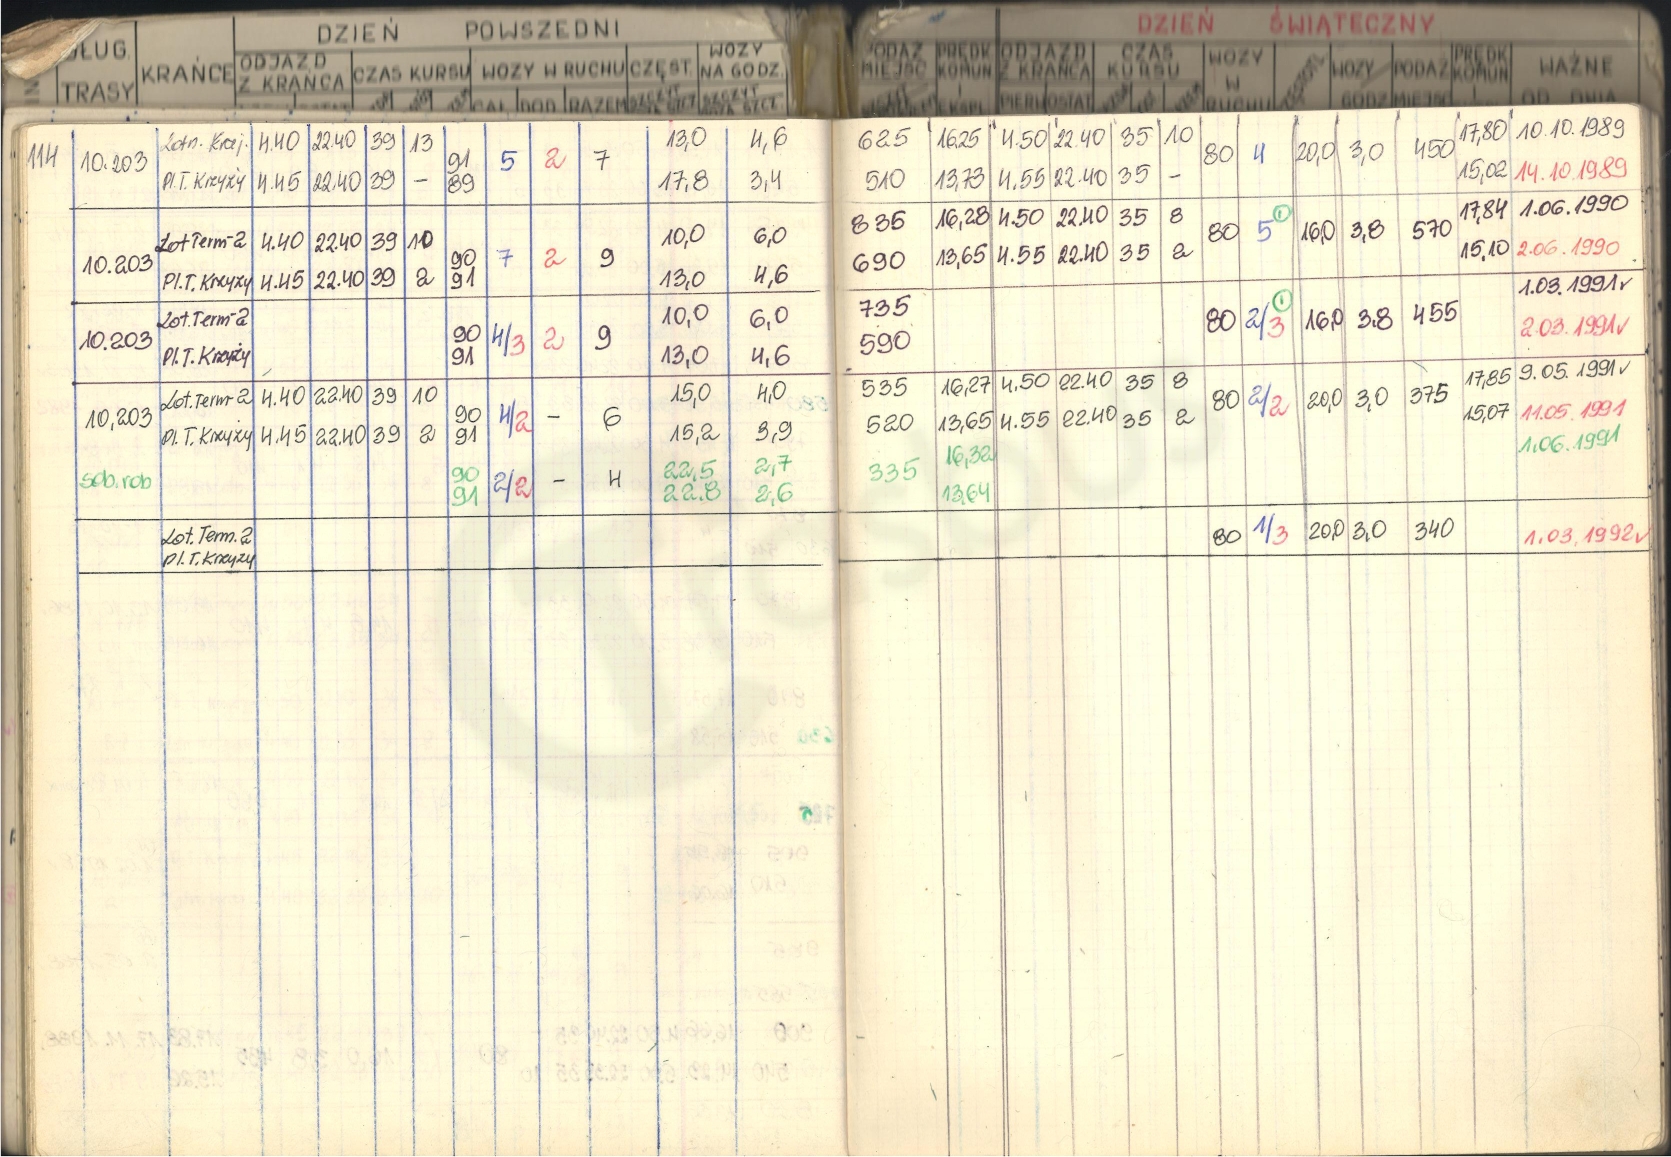 DZIEŃ POWSZEDNI DZIEŃ ŚWIĄTECZNY
DŁUG. TRASY KRAŃCE ODJAZD Z KRAŃCA CZAS KURSU WOZY W RUCHU CZĘST. WOZY NA GODZ. PODAŻ MIEJSC PRĘDK KOMUN ODJAZD Z KRAŃCA CZAS KURSU WOZY W RUCHU WOZY GODZ PODAŻ MIEJSC PRĘDK KOMUN WAŻNE OD DNIA
CAŁ DOD RAZEM SZCZYT SZCZYT EKSPL PIERW OSTAT
114 10.203 Lotn. Kraj. 4.40 22.40 39 13 91 5 2 7 13,0 4,6 625 16,25 4.50 22.40 35 10 80 4 20,0 3,0 450 17,80 10.10.1989
Pl.T. Krzyży 4.45 22.40 39 – 89 17,8 3,4 510 13,73 4.55 22.40 35 – 15,02 14.10.1989
10.203 Lot Term-2 4.40 22.40 39 10 90 7 2 9 10,0 6,0 835 16,28 4.50 22.40 35 8 80 5 ① 16,0 3,8 570 17,84 1.06.1990
Pl.T. Krzyży 4.45 22.40 39 2 91 13,0 4,6 690 13,65 4.55 22.40 35 2 15,10 2.06.1990
10.203 Lot.Term-2 90 4/3 2 9 10,0 6,0 735 80 2/3 ① 16,0 3,8 455 1.03.1991v
Pl.T. Krzyży 91 13,0 4,6 590 2.03.1991v
10,203 Lot.Term-2 4.40 22.40 39 10 90 4/2 – 6 15,0 4,0 535 16,27 4.50 22.40 35 8 80 2/2 20,0 3,0 375 17,85 9.05.1991v
Pl.T. Krzyży 4.45 22.40 39 2 91 15,2 3,9 520 13,65 4.55 22.40 35 2 15,07 11.05.1991
sob.rob 90 2/2 – 4 22,5 2,7 335 16,32 1.06.1991
91 22.8 2,6 13,64
Lot.Term.2 80 1/3 20,0 3,0 340 1.03.1992v
Pl.T. Krzyży